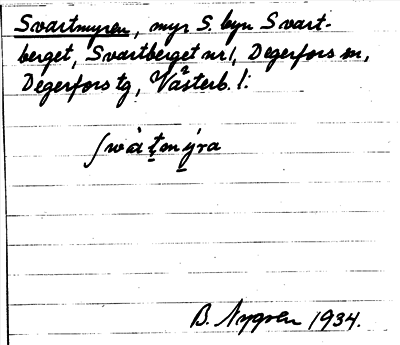 Svartmyren, myr S. byn Svart-
berget, Svartberget nr 1, Degerfors sn,
Degerfors tg, Västerb. l:
ʃwàt̩mýra
B. Nygren 1934.